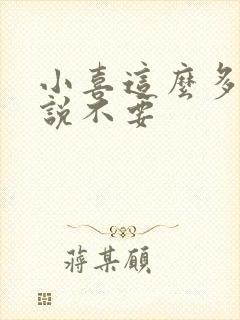 小喜這麼多
說不要
蔣某顧